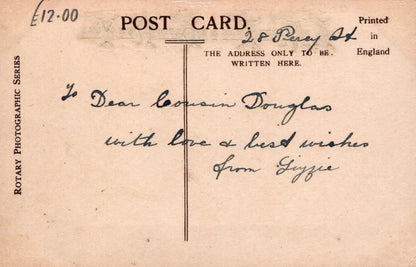 £12.00
POST CARD.
Printed
in
England
28 Percy St
THE ADDRESS ONLY TO BE
WRITTEN HERE.
ROTARY PHOTOGRAPHIC SERIES
To Dear Cousin Douglas
with love & best wishes
from Lizzie